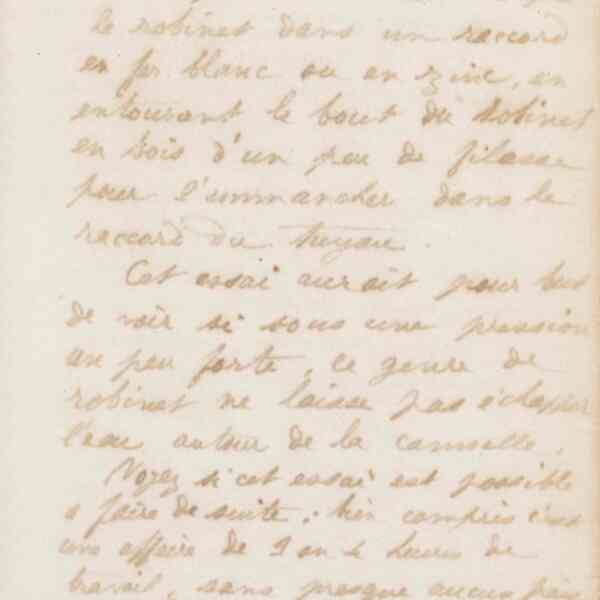 le robinet dans un raccord
en fer blanc ou en zinc, en
entourant le bout du robinet
en bois d'un peu de filasse
pour l'emmancher dans le
raccord du tuyau.
Cet essai aurait pour but
de voir si sous une pression
un peu forte, ce genre de
robinet ne laisse pas échapper
l'eau autour de la cannelle.
Voyez si cet essai est possible
a faire de suite; bien compris c'est
une affaire de 2 ou 4 heures de
travail, sans presque aucun frais